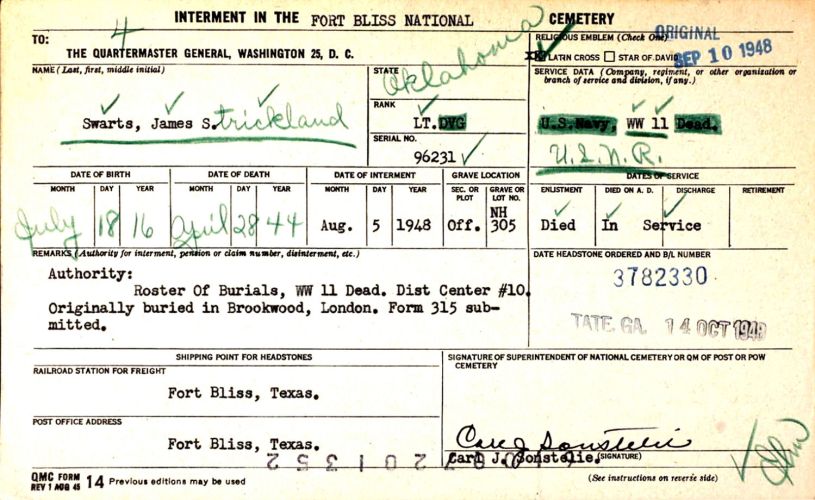 INTERMENT IN THE FORT BLISS NATIONAL CEMETERY
4
TO:
THE QUARTERMASTER GENERAL, WASHINGTON 25, D. C.
RELIGIOUS EMBLEM (Check One)
ORIGINAL
LATIN CROSS STAR OF DAVID
SEP 10 1948
NAME (Last, first, middle initial)
Swarts, James S.trickland
STATE
Oklahoma
RANK
LT.DVG
SERIAL NO.
96231
SERVICE DATA (Company, regiment, or other organization or branch of service and division, if any.)
U.S.Navy, WW 11 Dead.
U.S.N.R.
DATE OF BIRTH
MONTH DAY YEAR
July 18 16
DATE OF DEATH
MONTH DAY YEAR
April 28 44
DATE OF INTERMENT
MONTH DAY YEAR
Aug. 5 1948
GRAVE LOCATION
SEC. OR PLOT
GRAVE OR LOT NO.
Off. NH 305
DATES OF SERVICE
ENLISTMENT DIED ON A. D. DISCHARGE RETIREMENT
Died In Service
REMARKS (Authority for interment, pension or claim number, disinterment, etc.)
Authority:
Roster Of Burials, WW 11 Dead. Dist Center #10.
Originally buried in Brookwood, London. Form 315 sub-
mitted.
DATE HEADSTONE ORDERED AND B/L NUMBER
3782330
TATE. GA. 14 OCT 1948
SHIPPING POINT FOR HEADSTONES
RAILROAD STATION FOR FREIGHT
Fort Bliss, Texas.
POST OFFICE ADDRESS
Fort Bliss, Texas.
SIGNATURE OF SUPERINTENDENT OF NATIONAL CEMETERY OR QM OF POST OR POW CEMETERY
Carl J Sonstelie
Carl J. Sonstelie. (SIGNATURE)
QMC FORM
REV 1 AUG 45 14 Previous editions may be used
(See instructions on reverse side)